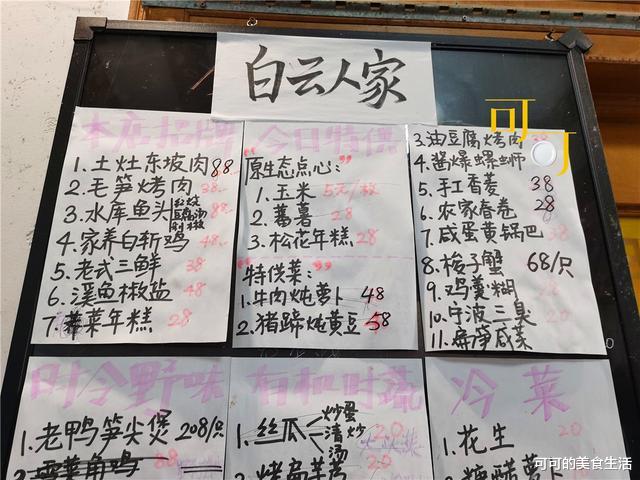 白云人家
本店招牌
1.土灶东坡肉 88
2.毛笋烤肉 38
3.水库鱼头 88
4.家养白斩鸡 48
5.老式三鲜 38
6.溪鱼椒盐 48
7.荠菜年糕 28
今日特供
原生态点心:
1.玉米 5元/枚
2.蕃薯 28
3.松花年糕 28
特伐菜:
1.牛肉炖萝卜 48
2.猪蹄炖黄豆 58
3.油豆腐烤肉
4.酱爆螺蛳
5.手工香荾 38
6.农家春卷 28
7.咸蛋黄锅巴
8.梭子蟹 68/只
9.鸡羹糊
10.宁波三臭
11.海蜇咸菜
可可
时令野味
1.老鸭笋尖煲 208/只
2.雪菜角鸡 88
有机时蔬
1.丝瓜 炒蛋 清炒 汤 20
冷菜
1.花生 20
2.糖醋萝卜
可可的美食生活